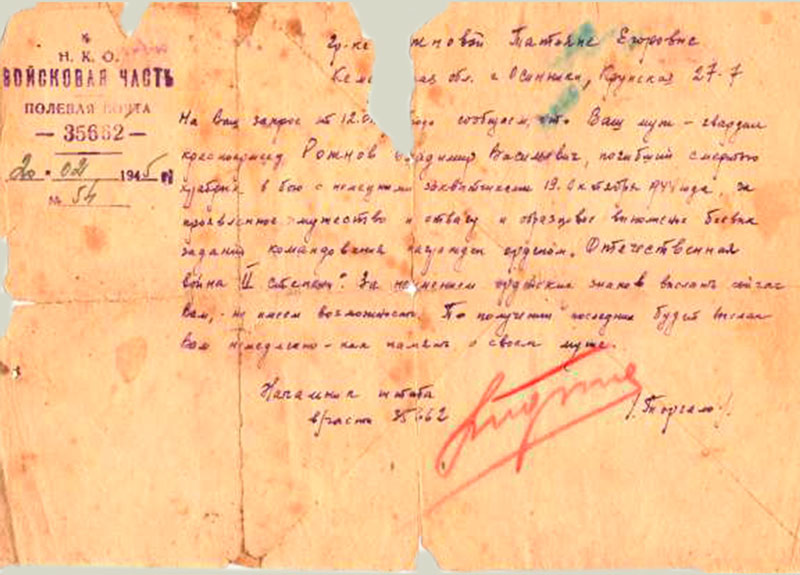 Н. К. О.
ВОЙСКОВАЯ ЧАСТЬ
ПОЛЕВАЯ ПОЧТА
— 35662 —
20 " 02 1945 г
№ 54
гр-ке жновой Татьяне Егоровне
Кеме кая обл. г. Осинники, Крупская 27-7
На Ваш запрос от 12.0 года сообщаем, что Ваш муж - гвардии
красноармеец Рожнов Владимир Васильевич, погибший смертью
храбрых в бою с немецкими захватчиками 19. Октября 194 года, за
проявленное мужество и отвагу и образцовое выполнение боевых
заданий командования награжден орденом. Отечественная
война II степени". За неимением орденских знаков выслать сейчас
Вам, - не имеем возможность. По получении последних будет выслан
Вам немедленно - как память о своем муже.
Начальник штаба
в/части 35662